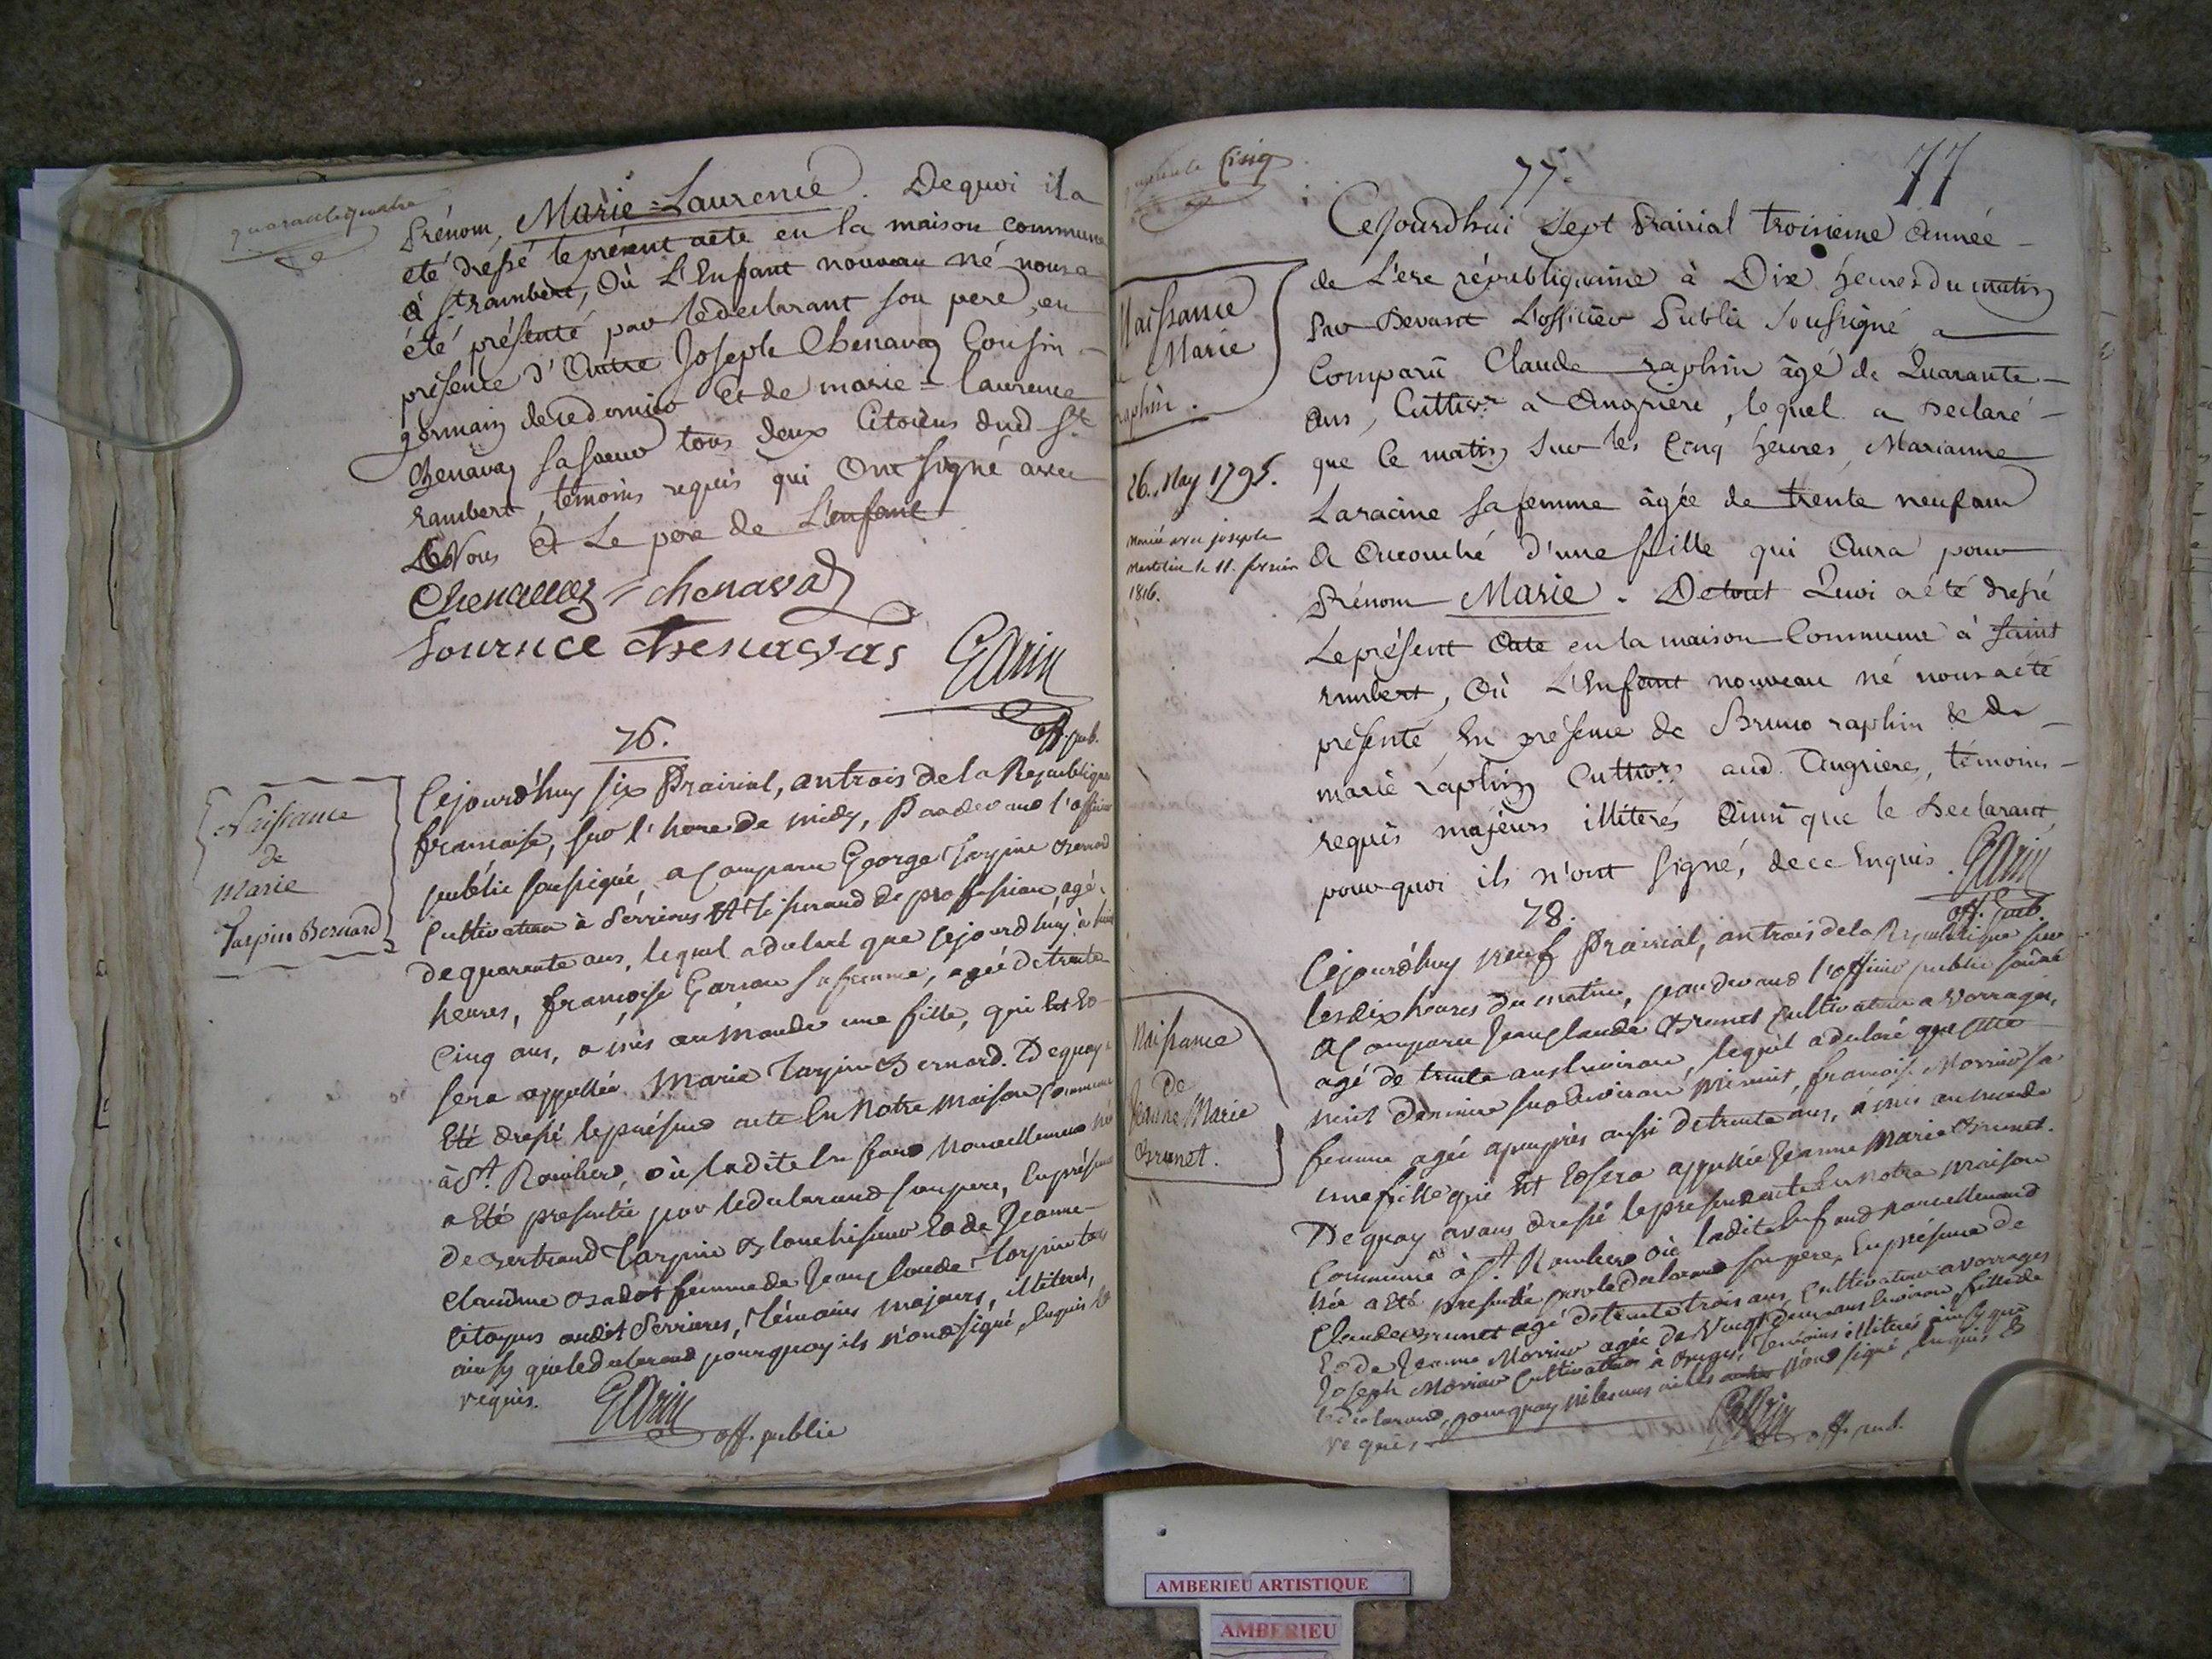 quarantequatre
Prénom, Marie=Laurence. Dequoi il a
eté dressé le présent acte en la maison commune
à St. rambert, Où L'Enfant nouveau né nous a
été présenté par le declarant son pere, en
présence d'Autre Joseph Chenavaz Cousin
germain de ce dernier et de marie=laurence
Chenavaz sa soeur tous deux Citoiens dud. St
rambert, témoins requis qui Ont signé avec
Nous et Le pere de L'enfant
Chenavaz chenavaz
Lournce chenavas
Garin
off. pub.
76.
Naissance
de
Marie
Tarpin Bernard
Cejourd'huy six Prairial, an trois de la Republique
francaise, sur l'heure de midy, Pardevant l'officier
public soussigné, a Comparu George Tarpin Bernard
Cultivateur à Serrieres et Tisserand de profession, agé
de quarante ans, lequel a declaré que cejourd'huy à
heures, francoise sa femme, agée de trente
Cinq ans, a mis au monde une fille, qui est Et
sera appellée Marie Tarpin Bernard. De quoy a
Eté dressé le présent acte En Notre Maison Commune
à St. Rambert, où ladite Enfant Nouvellement née
a Eté presentée par le declarant son pere, En présence
de Bertrand Tarpin Blanchisseur Et de Jeanne-
Claudine femme de Jean Claude Tarpin tous
Citoyens audit Serrieres, Témoins Majeurs, illiterés,
ainsy que le declarant pourquoy ils n'ont signé, Enquis et
requis.
Garin
off. public
Cinq
77.
77
Naissance
de Marie
raphin.
26. May 1795.
mariée avec joseph
martelin le 11. fevrier
1816.
Cejourdhui Sept Prairial troisieme Année
de L'ere républiquaine à Dix heures du matin
Par Devant L'officier Public Soussigné a
Comparu Claude raphin âgé de Quarante
ans, Cultivr. à Angriere, lequel a Declaré
que Ce matin sur les Cinq heures Marianne
Laracine sa femme âgée de trente neuf ans
a Accouché d'une fille qui Aura pour
Prénom Marie. De tout Quoi a été dressé
Le présent Acte en la maison Commune à Saint
rambert, Où L'Enfant nouveau né nous a été
présenté En présence de Bruno raphin & de
marie raphin Cultivrs. aud. Angrieres, témoins
requis majeurs illitérés Ainsi que le Declarant,
pourquoi ils n'ont signé, de ce Enquis.
Garin
off. pub.
78.
Naissance
De
Jeanne Marie
Brunet.
Cejourd'huy neuf Prairial, an trois de la Republique sur
les dix heures du matin, pardevant l'officier public
a Comparu Jean Claude Brunet Cultivateur a Vorrages,
agé de trente ans Environ, lequel a declaré que cette
nuit derniere sur Environ Minuit, francoise Monnier sa
femme agée apeuprès aussi de trente ans, a mis au monde
une fille qui Est Et sera appellée Jeanne Marie Brunet.
De quoy avons dressé le present acte En Notre Maison
Commune à St. Rambert où ladite Enfant Nouvellement
Née a Eté presentée par le declarant son pere, En présence de
Claude Brunet agé de trente trois ans, Cultivateur a vorrages
Et de Jeanne Monnier agée de Vingt deux ans Environ fille de
Joseph Monnier Cultivateur à Témoins illiterés ainsy que
le declarant, pourquoy ni les uns ni les autres n'ont signé, Enquis Et
requis.
Garin
off. pub.
AMBERIEU ARTISTIQUE
AMBERIEU